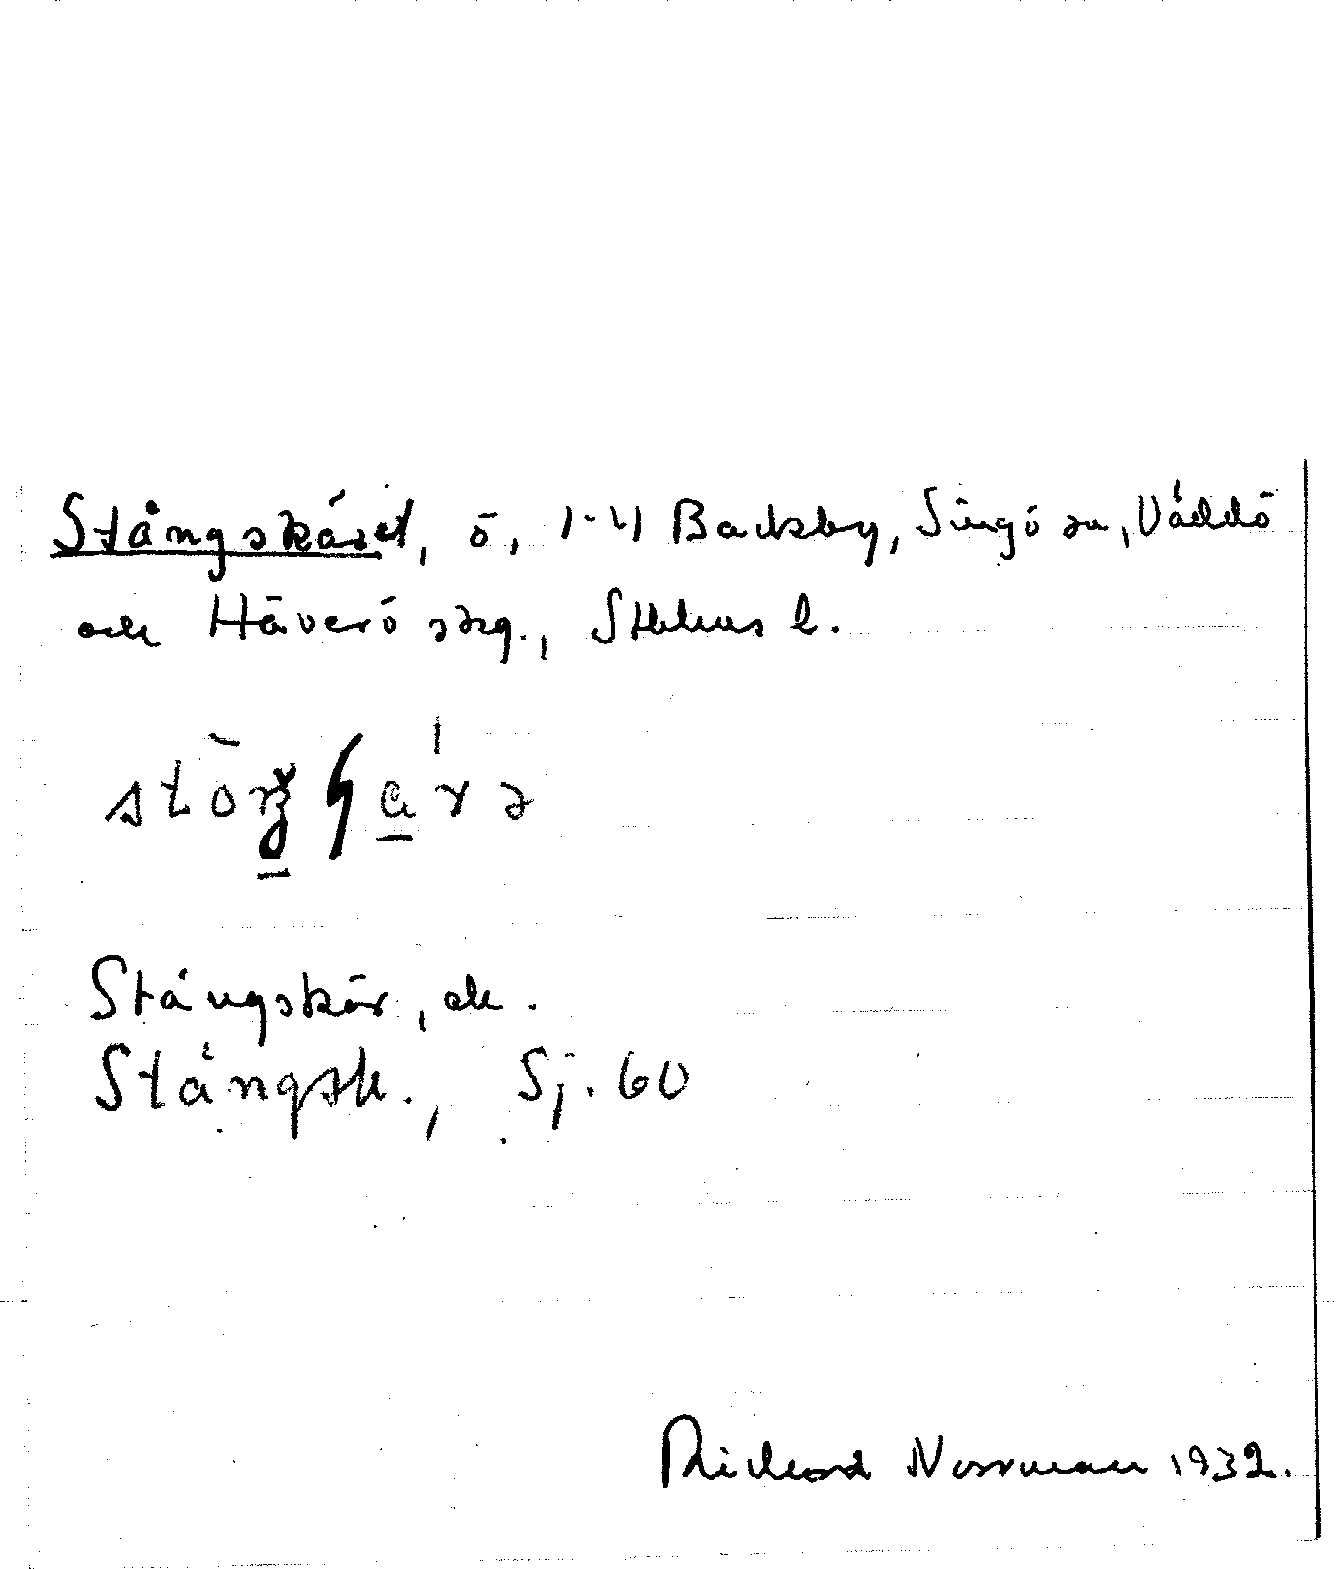 Stångskäret, ö, 1-4 Backby, Singö sn, Väddö
och Häverö skg., Sthlms l.
Stångskär, ek.
Stångsk., Sj. 60
Richard Norrman 1932.